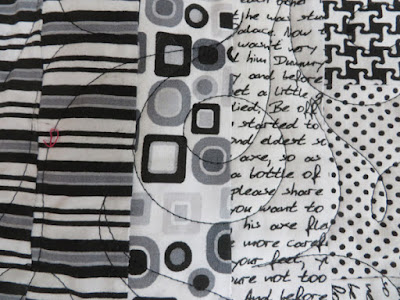 the was stu
place. Now
wasn't very
him Dummy
and before
et a little
died. Be off
started to
and eldest so
axe, so as
a bottle of
please share
you want to
his axe fle
e more caref
your feet
ure not too
And before